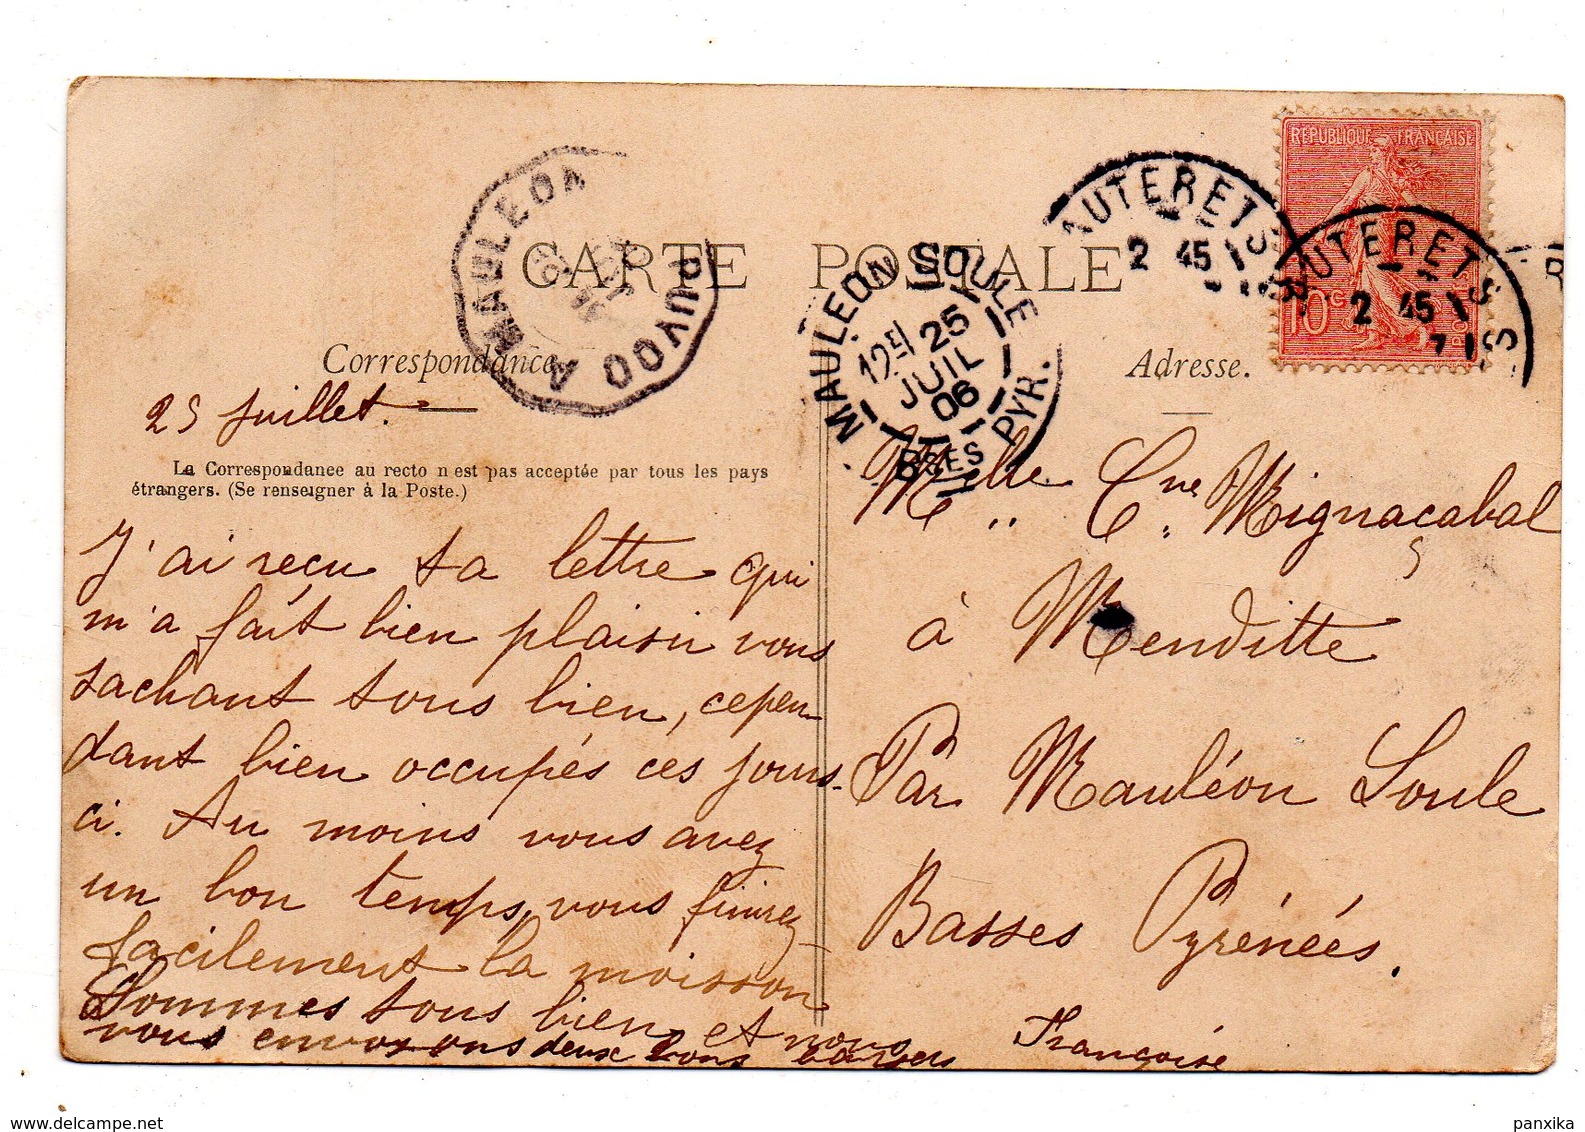 CARTE POSTALE
MAULEON A PUYOO
MAULEON SOULE
12E/ 25
JUIL
06
BSES PYR.
AUTERETS
2 45
AUTERETS
2 45
REPUBLIQUE FRANÇAISE
10c
Correspondance
Adresse.
25 juillet.
La Correspondance au recto n'est pas acceptée par tous les pays
étrangers. (Se renseigner à la Poste.)
J'ai reçu ta lettre qui
m'a fait bien plaisir vous
sachant tous bien, cepen-
dant bien occupés ces jours-
ci. Au moins vous avez
un bon temps, vous finirez
facilement la moisson
Sommes tous bien et nous
vous envoyons deux bons baisers
Françoise
Melle Cne Mignaçabal
à Menditte
Par Mauléon Soule
Basses Pyrénéés.
www.delcampe.net
panxika